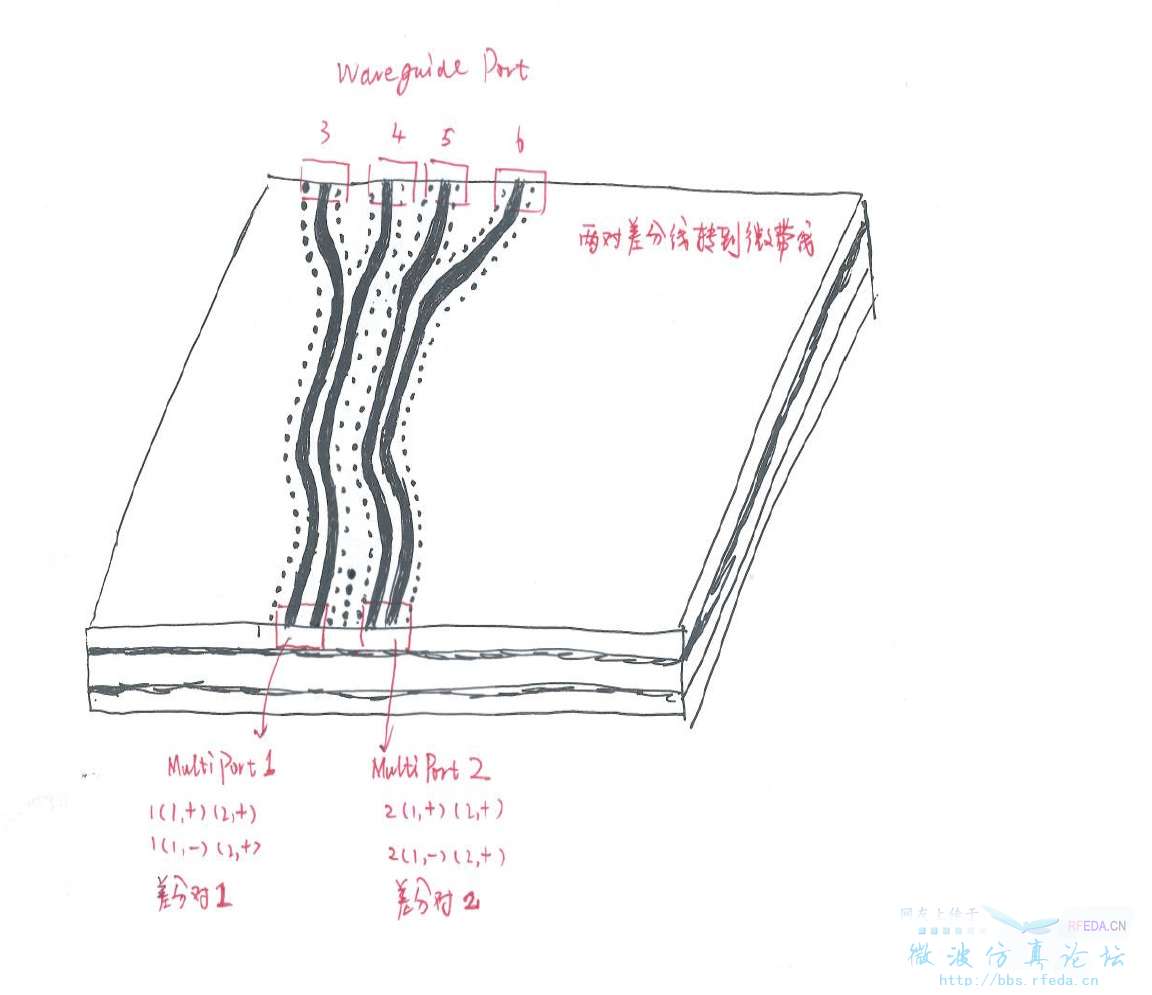 Waveguide Port
3 4 5 6
两对差分线转到微带线
MultiPort 1
1(1,+)(2,+)
1(1,-)(2,+)
差分对1
MultiPort 2
2(1,+)(2,+)
2(1,-)(2,+)
差分对2
网友上传于
RFEDA.CN
微波仿真论坛
http://bbs.rfeda.cn